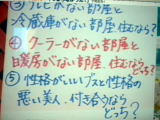 ③テレビがない部屋と
冷蔵庫がない部屋 住むなら?
④クーラーがない部屋と
暖房がない部屋 住むならどっち?
⑤性格がいいブスと性格の
悪い美人、付き合うなら
どっち?